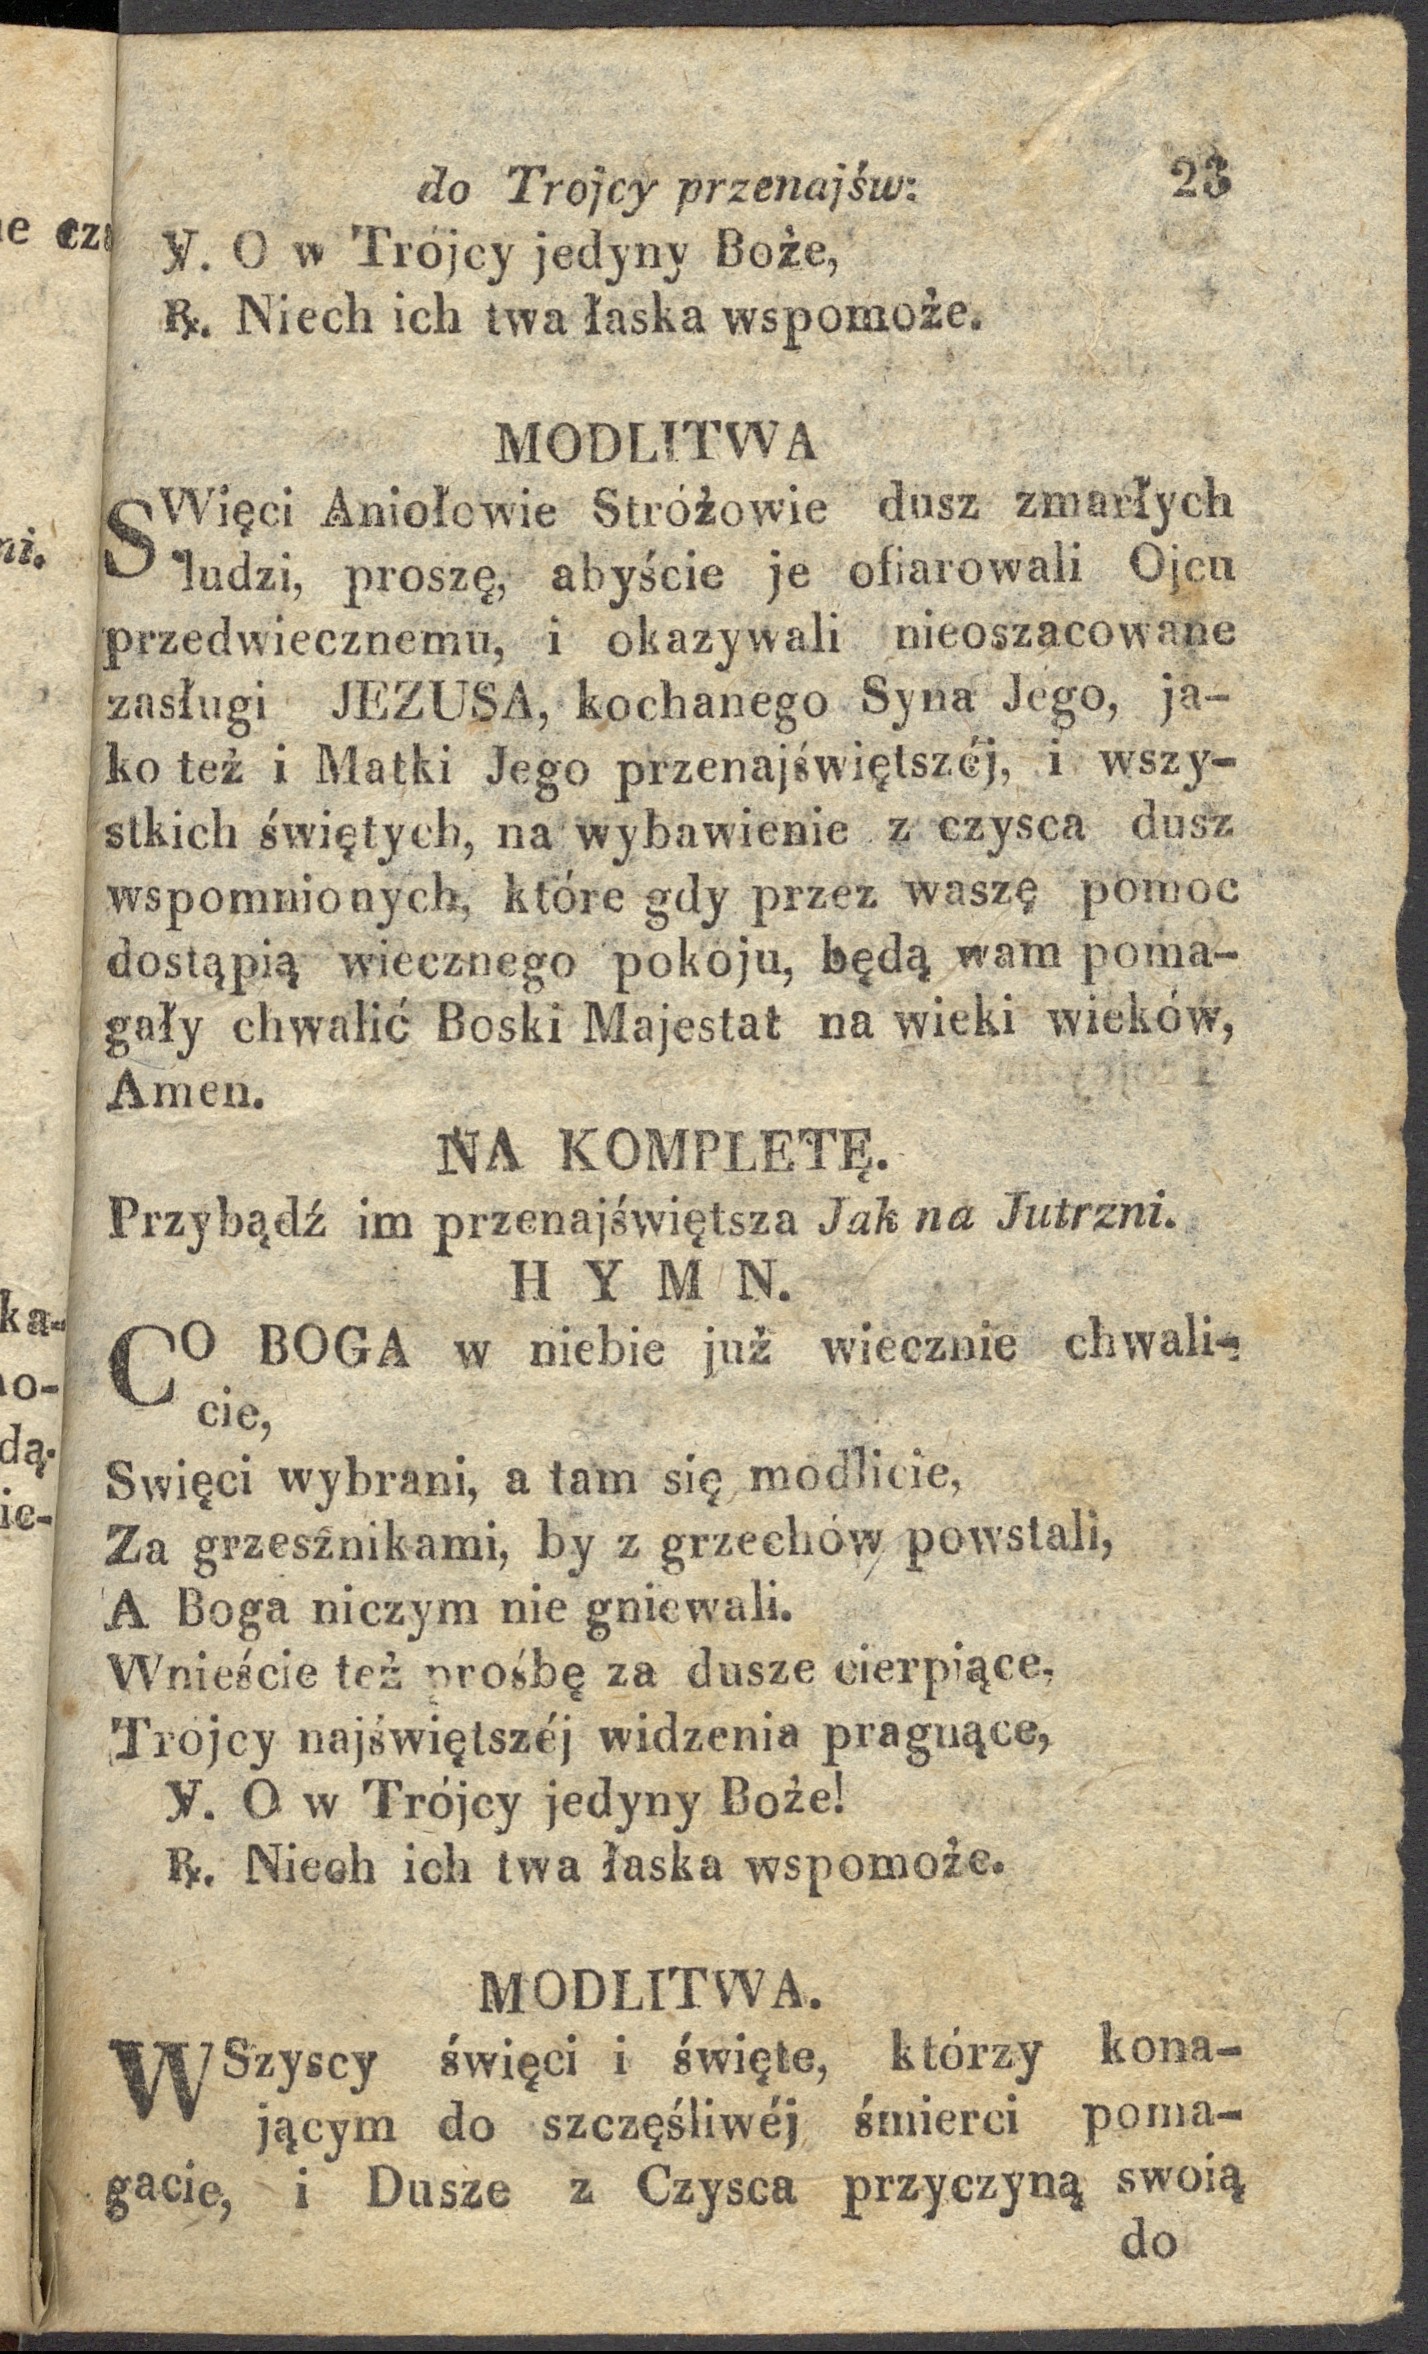 do Trojcy przenajśw: 23
℣. O w Trójcy jedyny Boże,
℟. Niech ich twa łaska wspomoże.
MODLITWA
SWięci Aniołowie Stróżowie dusz zmarłych
ludzi, proszę, abyście je ofiarowali Ojcu
przedwiecznemu, i okazywali nieoszacowane
zasługi JEZUSA, kochanego Syna Jego, ja-
ko też i Matki Jego przenajświętszéj, i wszy-
stkich świętych, na wybawienie z czysca dusz
wspomnionych, które gdy przez waszę pomoc
dostąpią wiecznego pokoju, będą wam poma-
gały chwalić Boski Majestat na wieki wieków,
Amen.
NA KOMPLETĘ.
Przybądź im przenajświętsza Jak na Jutrzni.
HYMN.
CO BOGA w niebie już wiecznie chwali-
cie,
Swięci wybrani, a tam się modlicie,
Za grzesznikami, by z grzechów powstali,
A Boga niczym nie gniewali.
Wnieście też prośbę za dusze cierpiące,
Trójcy najświętszéj widzenia pragnące,
℣. O w Trójcy jedyny Boże!
℟. Niech ich twa łaska wspomoże.
MODLITWA.
WSzyscy święci i święte, którzy kona-
jącym do szczęśliwéj śmierci poma-
gacie, i Dusze z Czysca przyczyną swoią
do